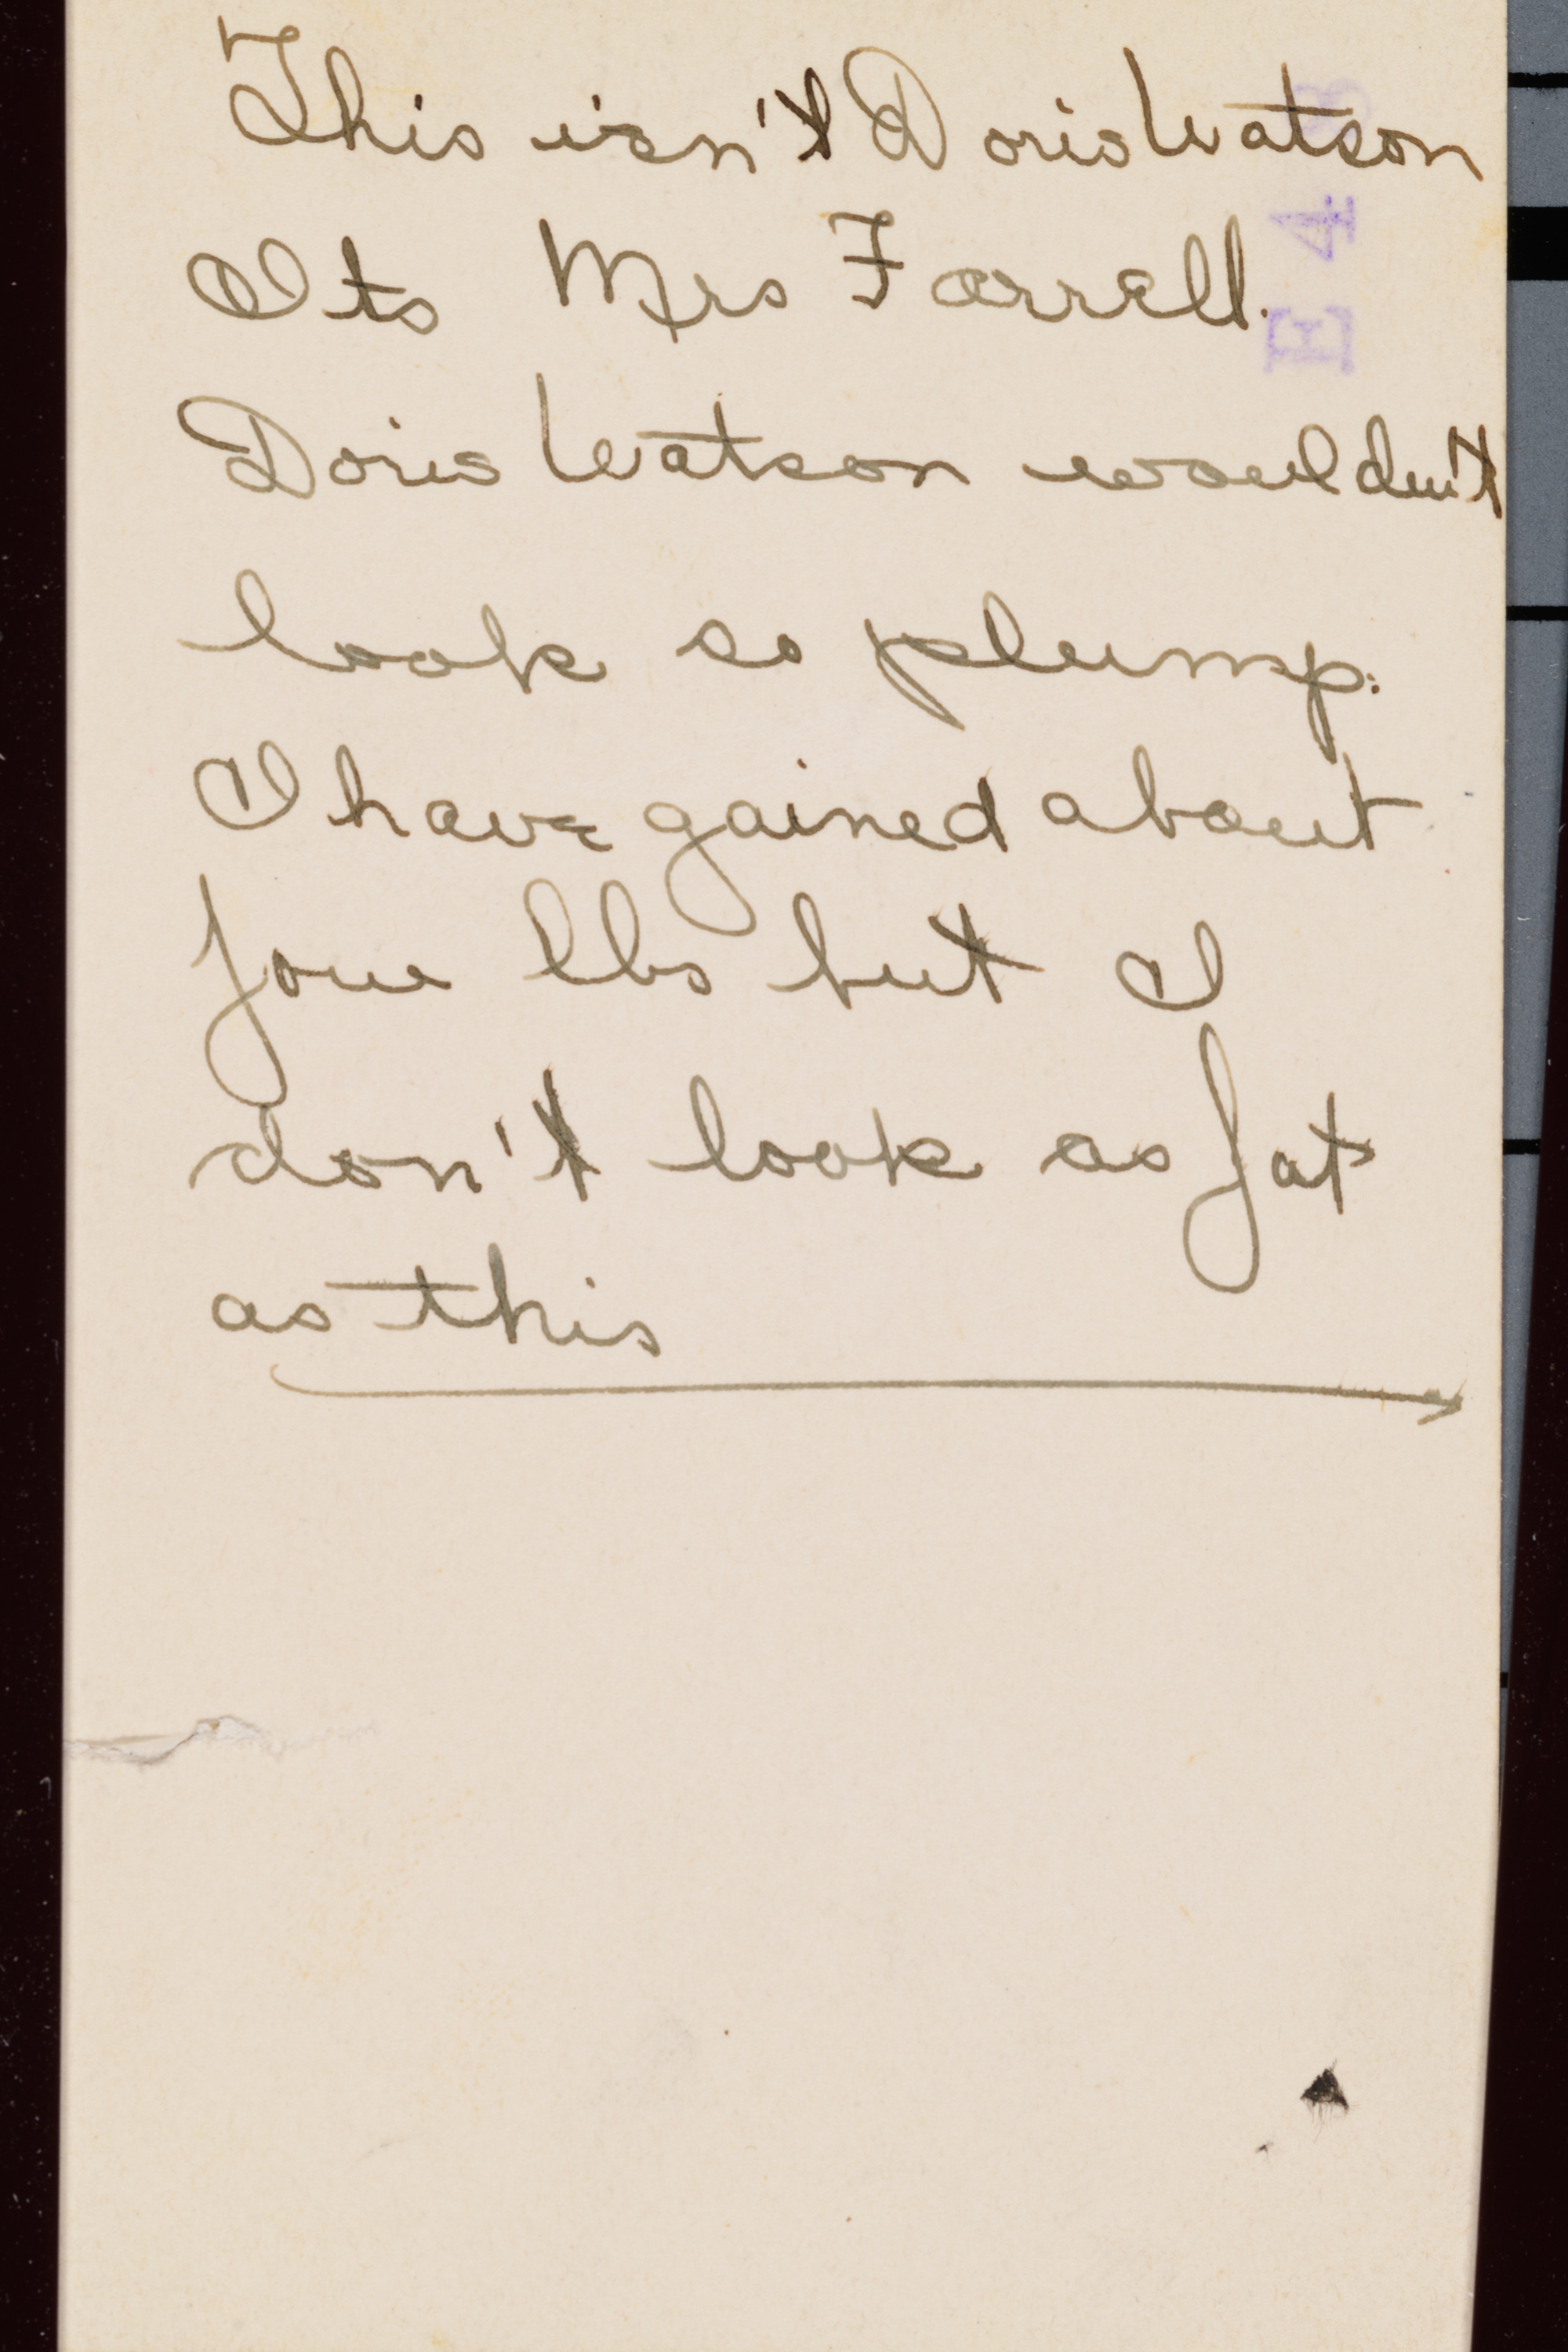 This isn't Doris Watson
Its Mrs Farrell.
Doris Watson wouldn't
look so plump.
I have gained about
four lbs but I
don't look as fat
as this
E 4